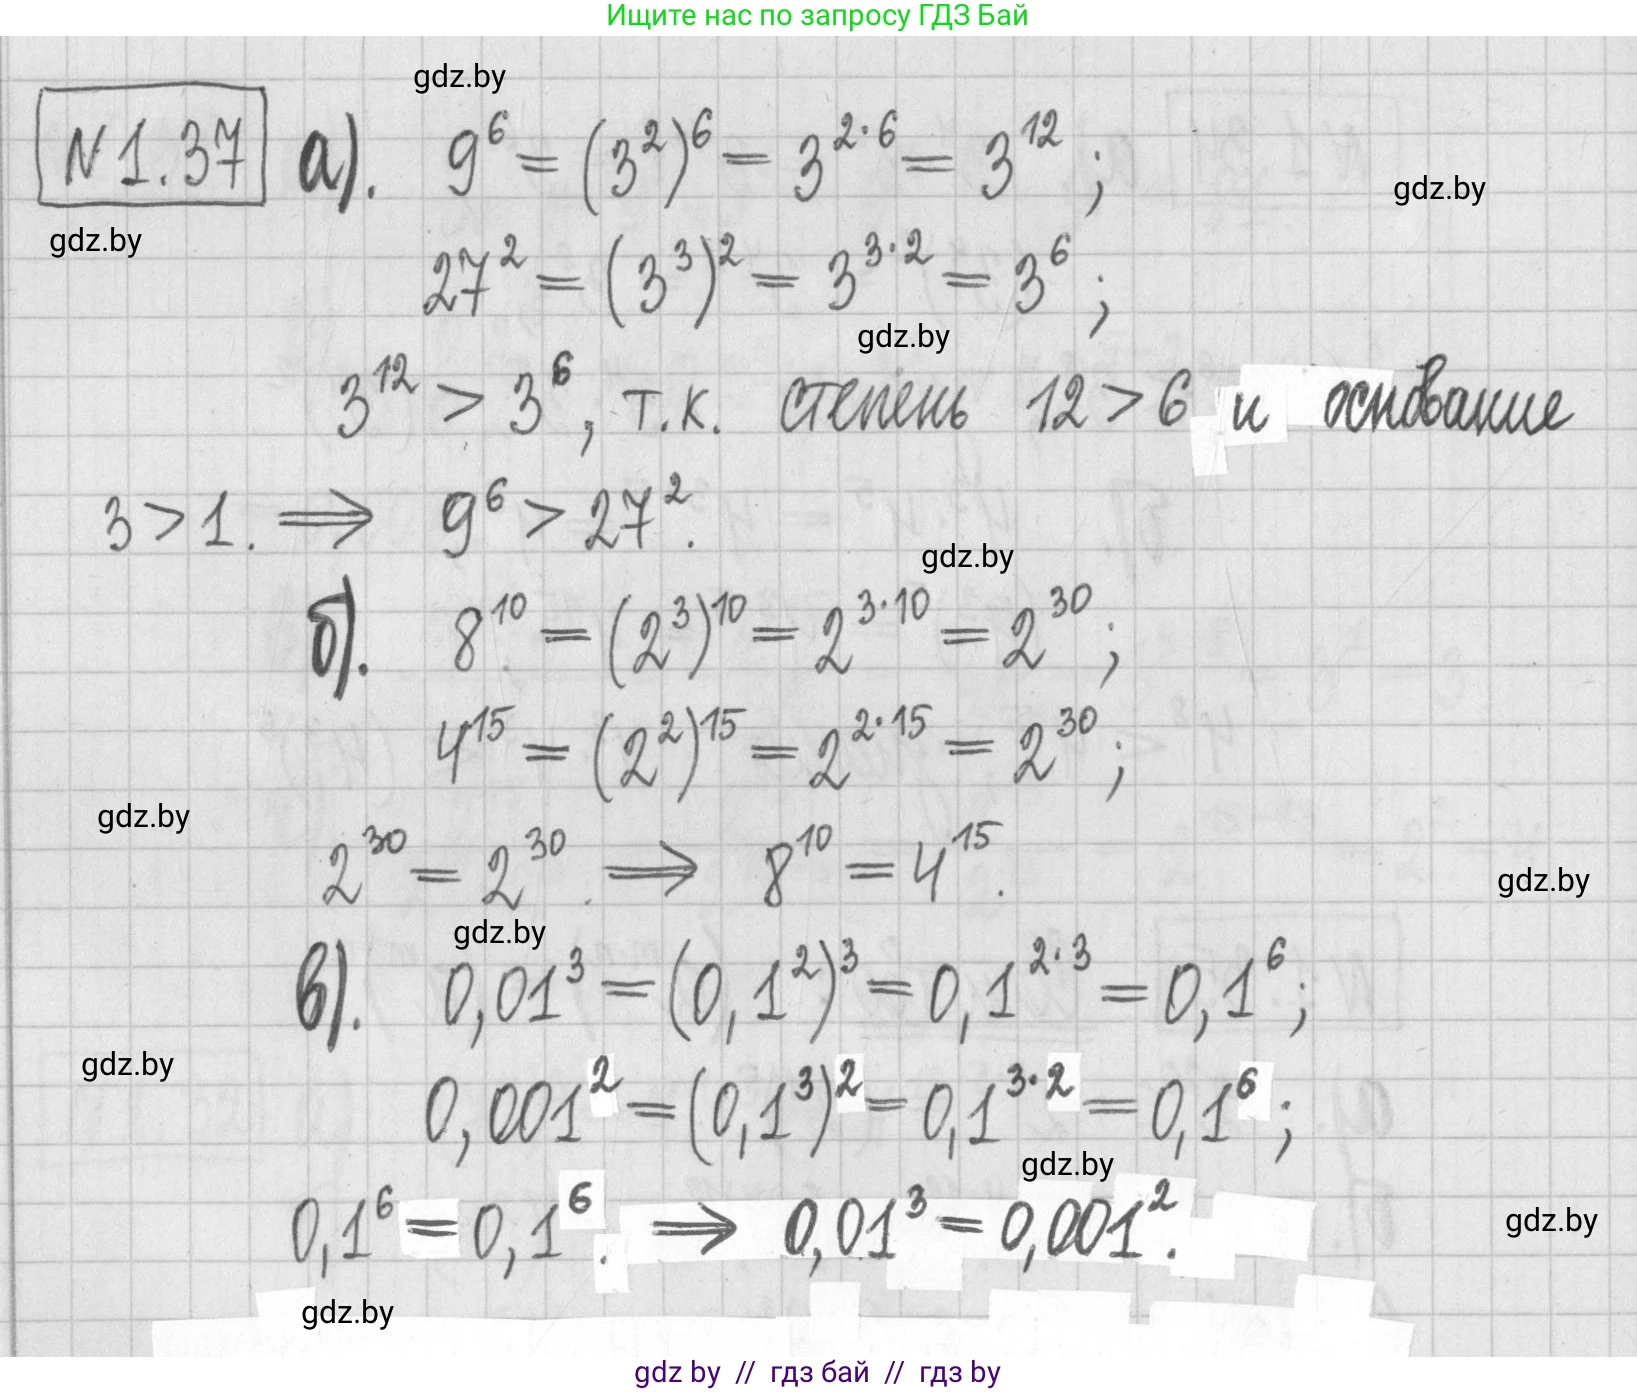 Ищите нас по запросу ГДЗ Бай
gdz.by
N1.37 а). 9^6 = (3^2)^6 = 3^{2·6} = 3^{12};
gdz.by
gdz.by
27^2 = (3^3)^2 = 3^{3·2} = 3^6;
gdz.by
3^{12} > 3^6, т.к. степень 12 > 6 и основание
3 > 1. ⟹ 9^6 > 27^2.
gdz.by
б). 8^{10} = (2^3)^{10} = 2^{3·10} = 2^{30};
4^{15} = (2^2)^{15} = 2^{2·15} = 2^{30};
gdz.by
2^{30} = 2^{30}. ⟹ 8^{10} = 4^{15}.
gdz.by
gdz.by
в). 0,01^3 = (0,1^2)^3 = 0,1^{2·3} = 0,1^6;
gdz.by
0,001^2 = (0,1^3)^2 = 0,1^{3·2} = 0,1^6;
gdz.by
0,1^6 = 0,1^6. ⟹ 0,01^3 = 0,001^2.
gdz.by
gdz.by
gdz by // гдз бай // гдз by